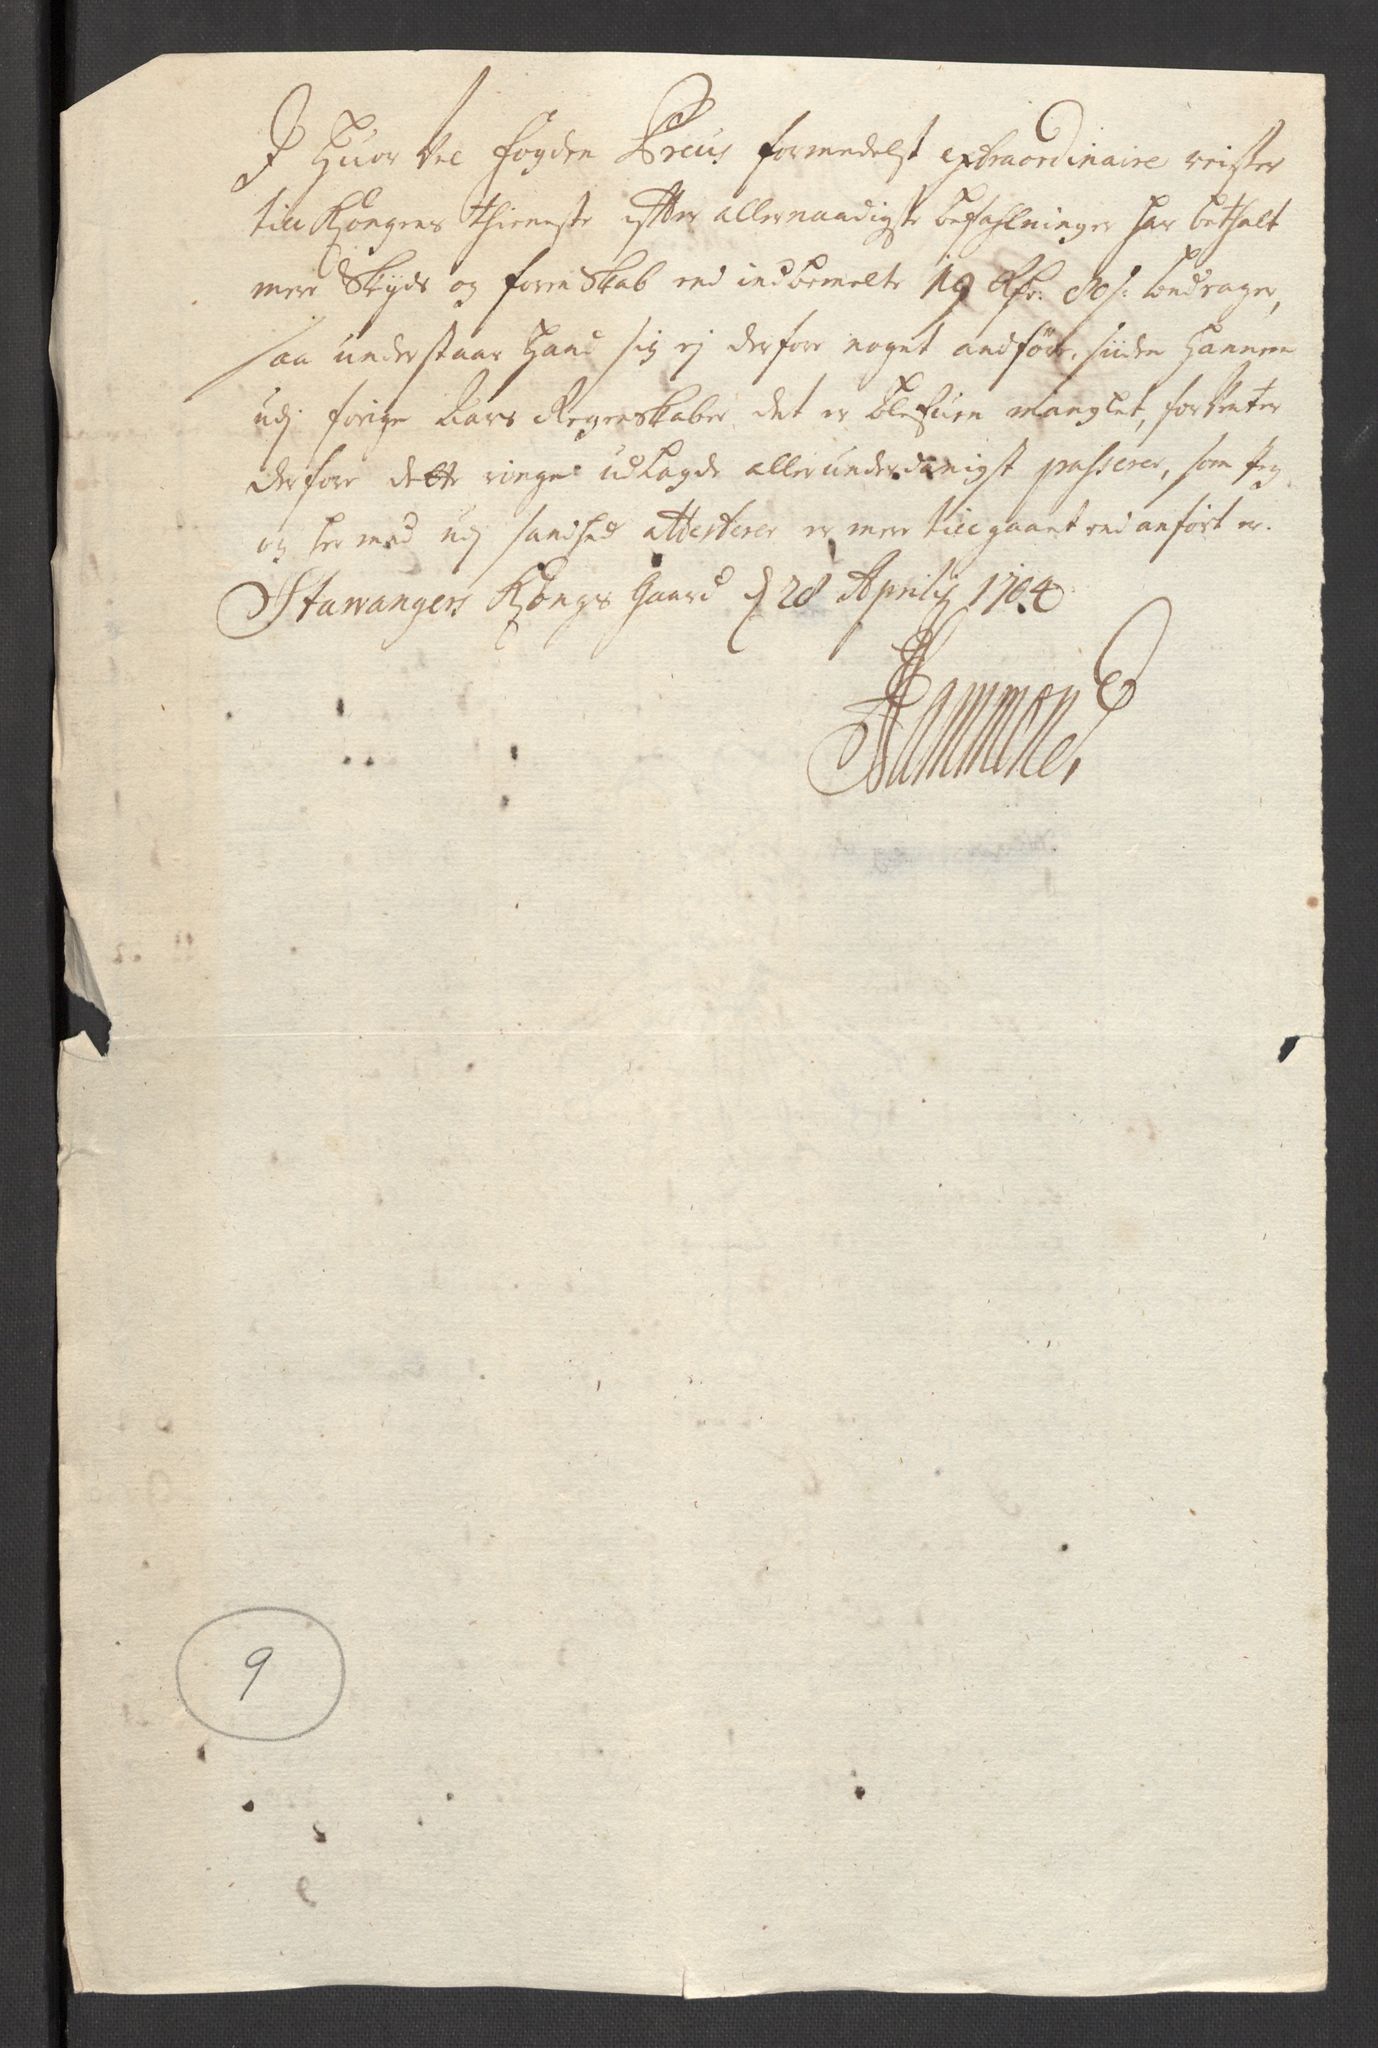 I Huor Vel fogden Preus formedelst extraordinaire reiser
till Kongens thieneste efter allernaadigste befahlninger har bethalt
mere Skyds og forin Skab end indbemelte 19 Rdr: 80 s: bedrager,
saa understaar Hand sig ej derfore noget andföre, siiden Hannem
udj forige Aars Regenskaber det er blefuen manglet, forVenter
derfore dette ringe udlagde allerunderdanigst passerer, som Jeg
og her med udj sandhed attesterer er mere till gaaet end anfört er.
Stawangers Kongs Gaard d 28 Aprilij 1704
Hammond
9